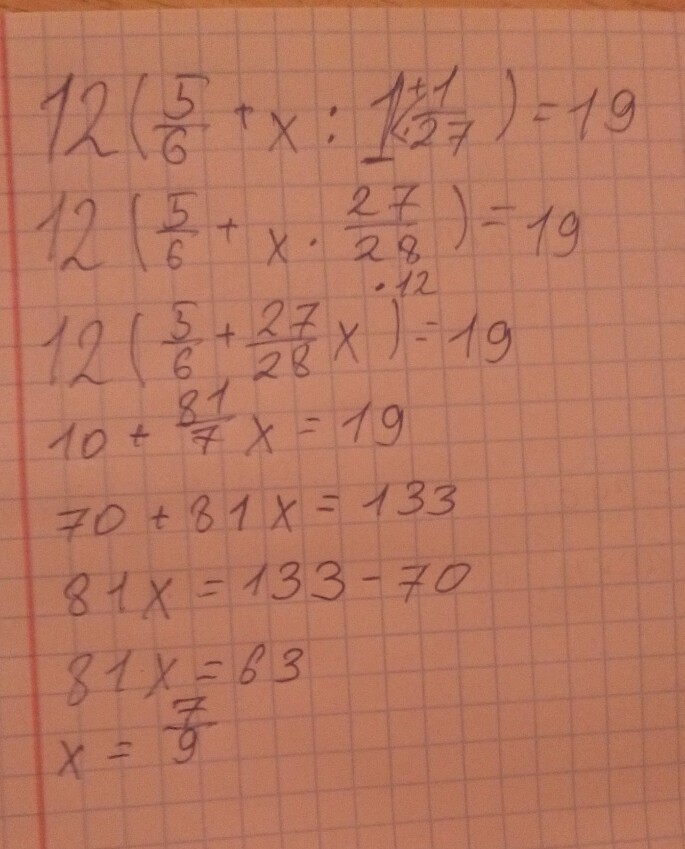 12(5/6 + x : 1 1/27) = 19
12(5/6 + x · 27/28) = 19
12(5/6 + 27/28 x)·12 = 19
10 + 81/7 x = 19
70 + 81x = 133
81x = 133 - 70
81x = 63
x = 7/9